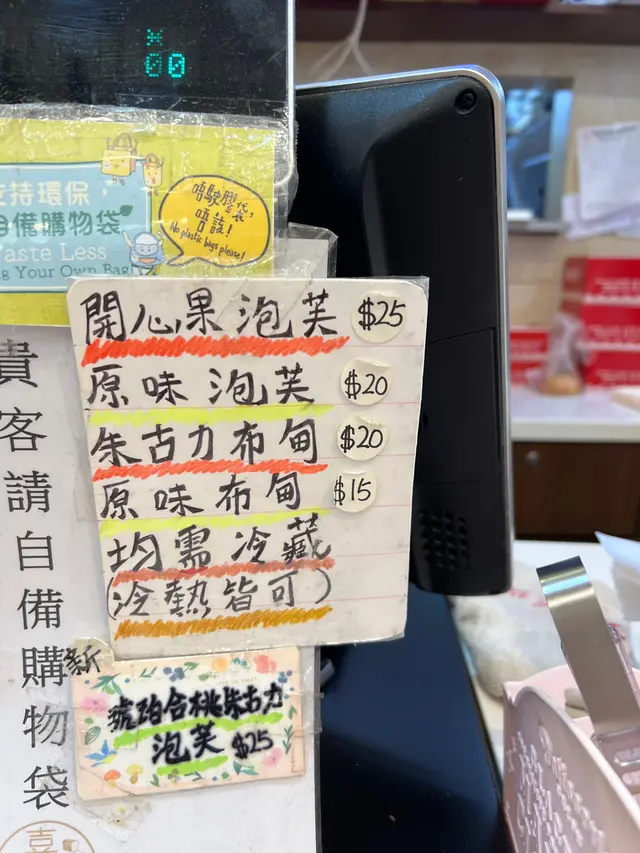 00
支持環保
自備購物袋
Waste Less
Bring Your Own Bag
唔駛膠袋,
唔該!
No plastic bags please!
開心果泡芙 $25
原味泡芙 $20
朱古力布甸 $20
原味布甸 $15
均需冷藏
(冷熱皆可)
新
琥珀合桃朱古力
泡芙 $25
貴客請自備購物袋
喜